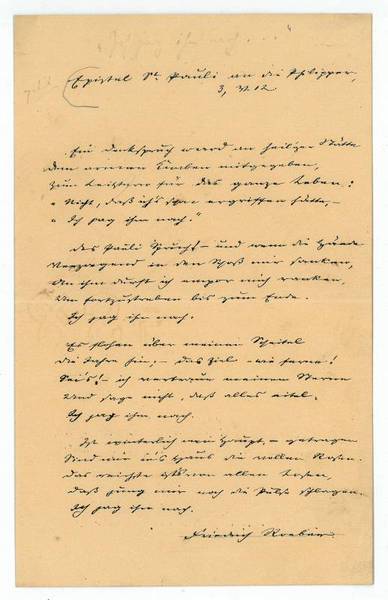 "Ich jag ihm nach...."
Epistel St. Pauli an die Philipper,
3, V. 12
Ein Denkspruch ward an heilger Stätte
dem armen Knaben mitgegeben,
Zum Leitstern für das ganze Leben:
"Nicht, daß ich's schon ergriffen hätte, –
"Ich jag ihm nach."
Des Pauli Spruch! – und wenn die Hände
Verzagend in den Schoß mir sanken,
An ihm durft ich empor mich ranken,
Um fortzustreben bis zum Ende.
Ich jag ihm nach.
Es flohen über meinen Scheitel
die Jahre hin, – das Ziel – wie ferne!
Sei's! – ich vertraue meinem Sterne
Und sage nicht, daß alles eitel.
Ich jag ihm nach.
Ist winterlich mein Haupt, – getragen
Sind mir in's Haus die welken Rosen.
Das reichste ist's von allen Losen,
daß jung mir noch die Pulse schlagen.
Ich jag ihm nach.
Friedrich Roeber